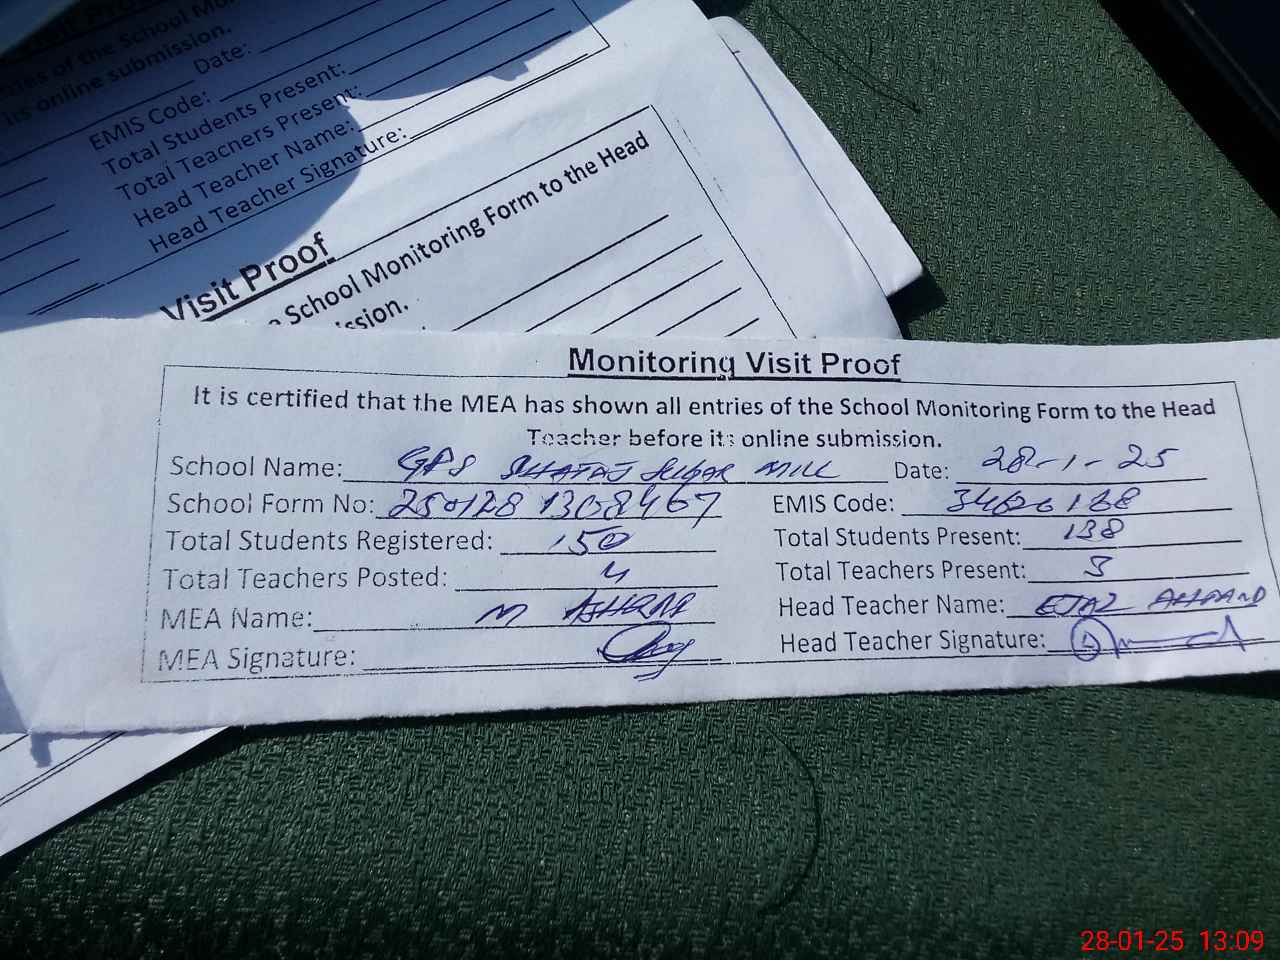 Date:
its online submission.
EMIS Code:
Total Students Present:
Total Teachers Present:
Head Teacher Name:
Head Teacher Signature:
Visit Proof
School Monitoring Form to the Head
Monitoring Visit Proof
It is certified that the MEA has shown all entries of the School Monitoring Form to the Head
Teacher before its online submission.
School Name: GPS SHATAJ SUGAR MILL Date: 28-1-25
School Form No: 250128 1308467 EMIS Code:
Total Students Registered: 150 Total Students Present: 138
Total Teachers Posted: 4 Total Teachers Present: 3
MEA Name: M Head Teacher Name: EJAZ
MEA Signature: Head Teacher Signature:
28-01-25 13:09